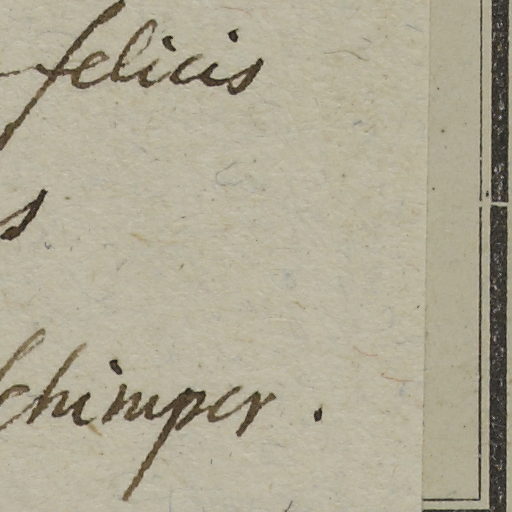 felicis
s
chimper.